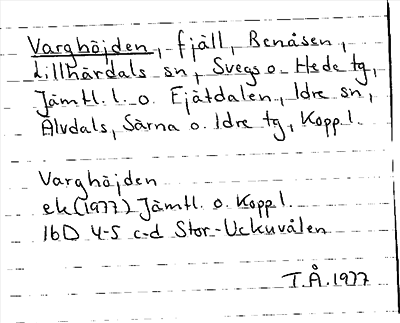 Varghöjden, fjäll, Benåsen,
Lillhärdals sn, Svegs o. Hede tg,
Jämtl. l. o. Fjätdalen, Idre sn,
Älvdals, Särna o. Idre tg, Koppl.
Varghöjden
ek (1977) Jämtl. o. Koppl.
16D 4-5 c-d Stor-Uckuvålen
T.Å. 1977